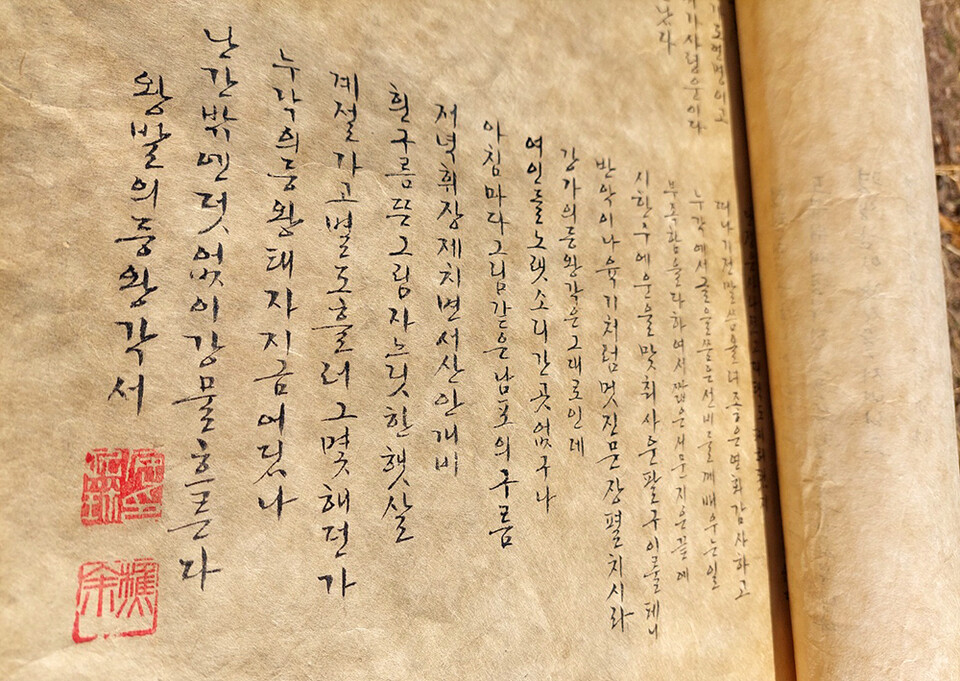 난다
떠나기전 말씀을 너 좋은 연회 감사하고
누각에서 글을 쓸은 선비들께 배우는 일
부족함을 다하여서 짧은 서문 지은 끝에
시 한 수에 운을 맞춰 사운팔구 이룰테니
반악이나 육기처럼 멋진 문장 펼치시라
강가의 등왕각은 그대로인데
여인들 노랫소리 간 곳 없구나
아침마다 그림같은 남포의 구름
저녁 휘장 제치면 서산 안개비
흰구름 뜬 그림자 느릿한 햇살
계절 가고 별도 흘러 그 몇 해던가
누각의 등왕태자 지금 어딨나
난간 밖엔 덧없이 강물 흐른다
왕발의 등왕각서
樵余